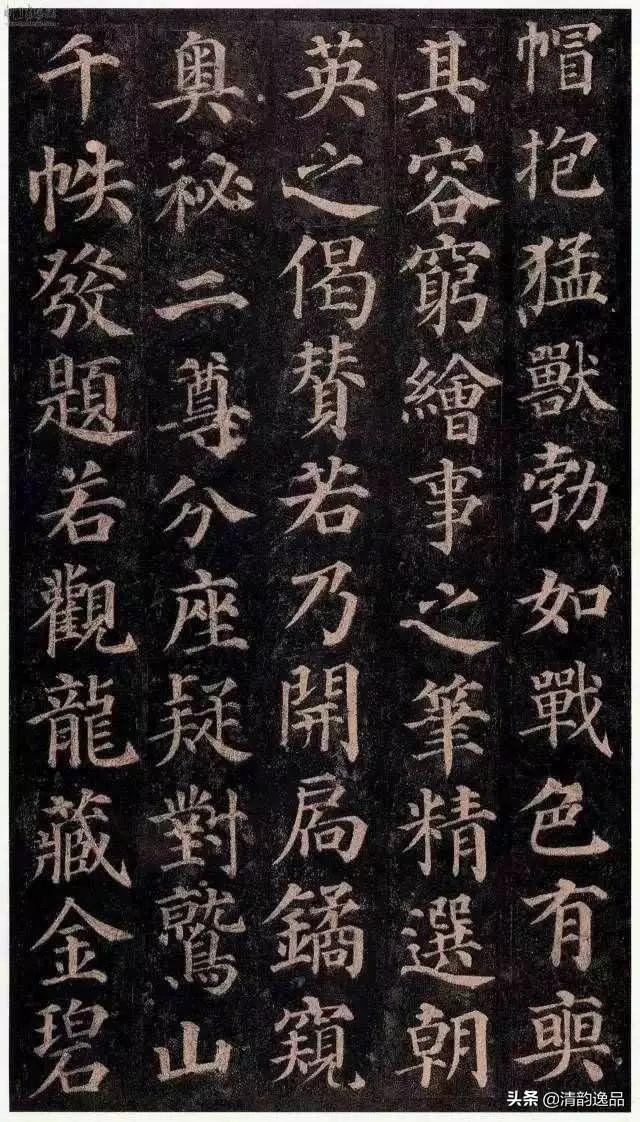 帽抱猛獸勃如戰色有奭
其容窮繪事之筆精選朝
英之偈賛若乃開扃鐍窺
奥祕二尊分座疑對鷲山
千帙發題若觀龍藏金碧
头条 @清韵逸品